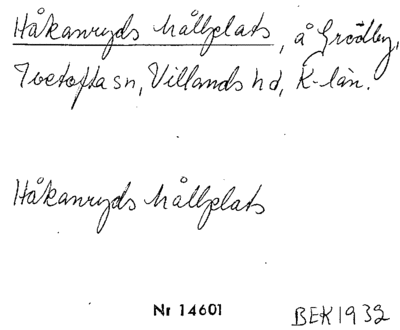 Håkanryds hållplats, å Grödby,
Ivetofta sn, Villands hd, K-län.
Håkanryds hållplats
Nr 14601 BEK 1932